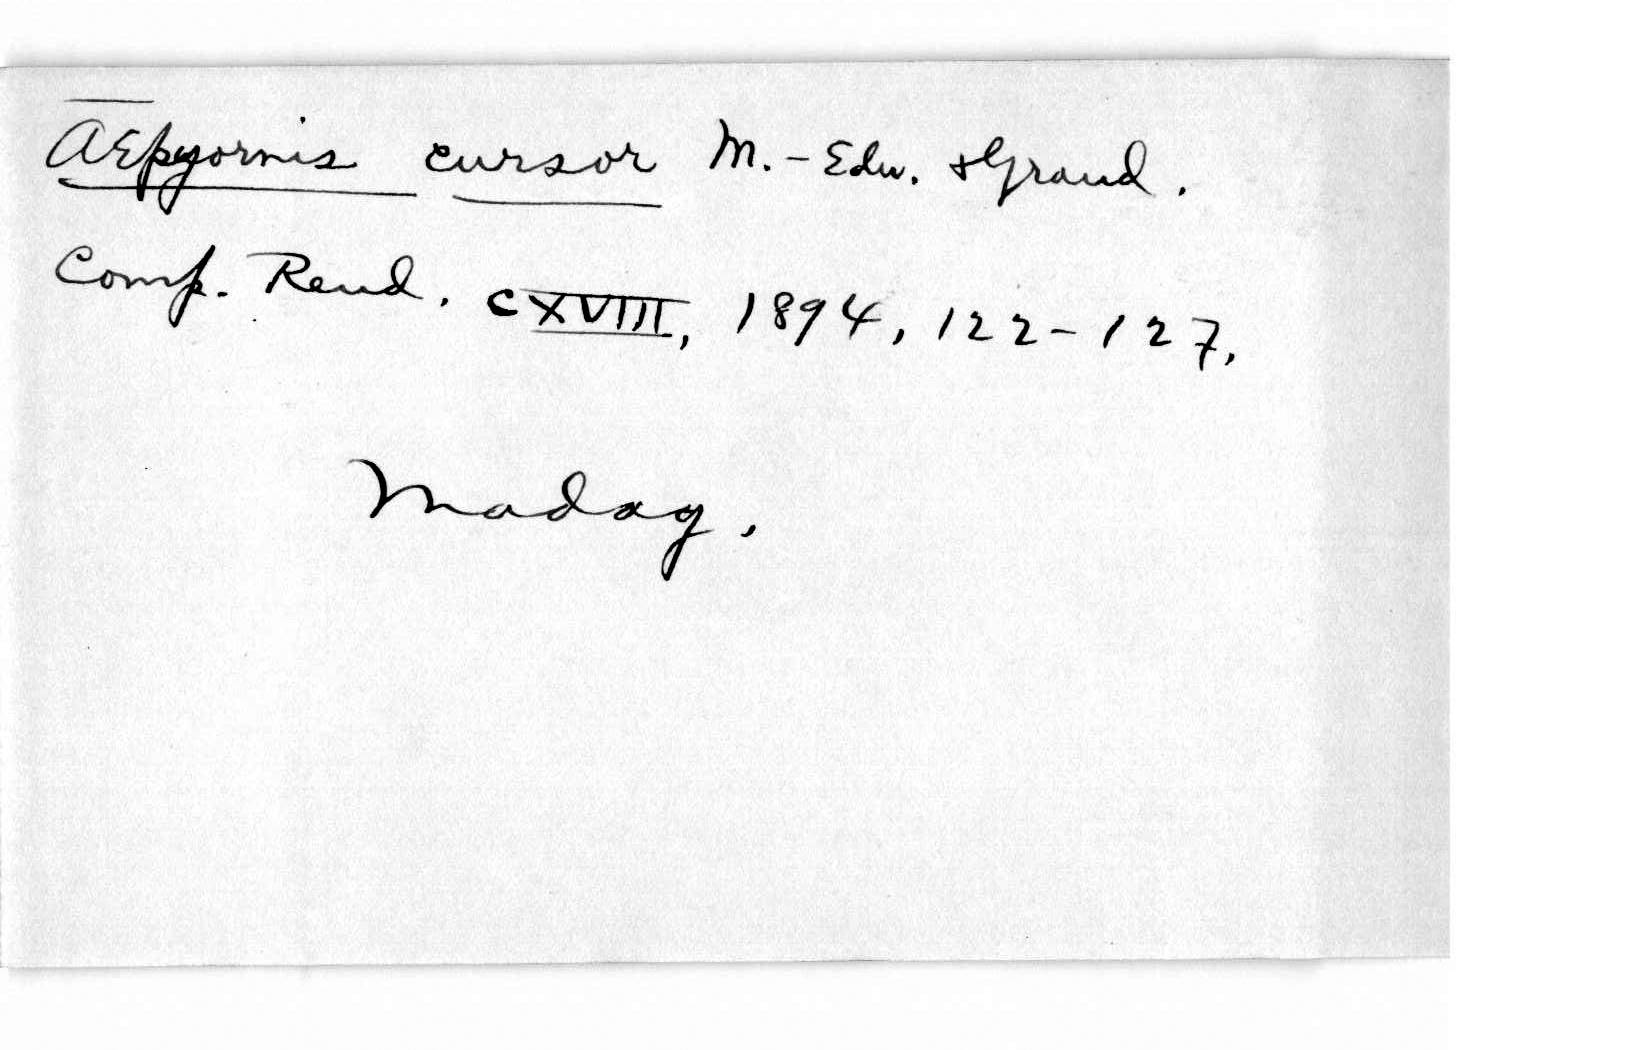 Aepyornis cursor M.-Edw. & Grand.
Comp. Rend. CXVIII, 1894, 122-127.
Madag.